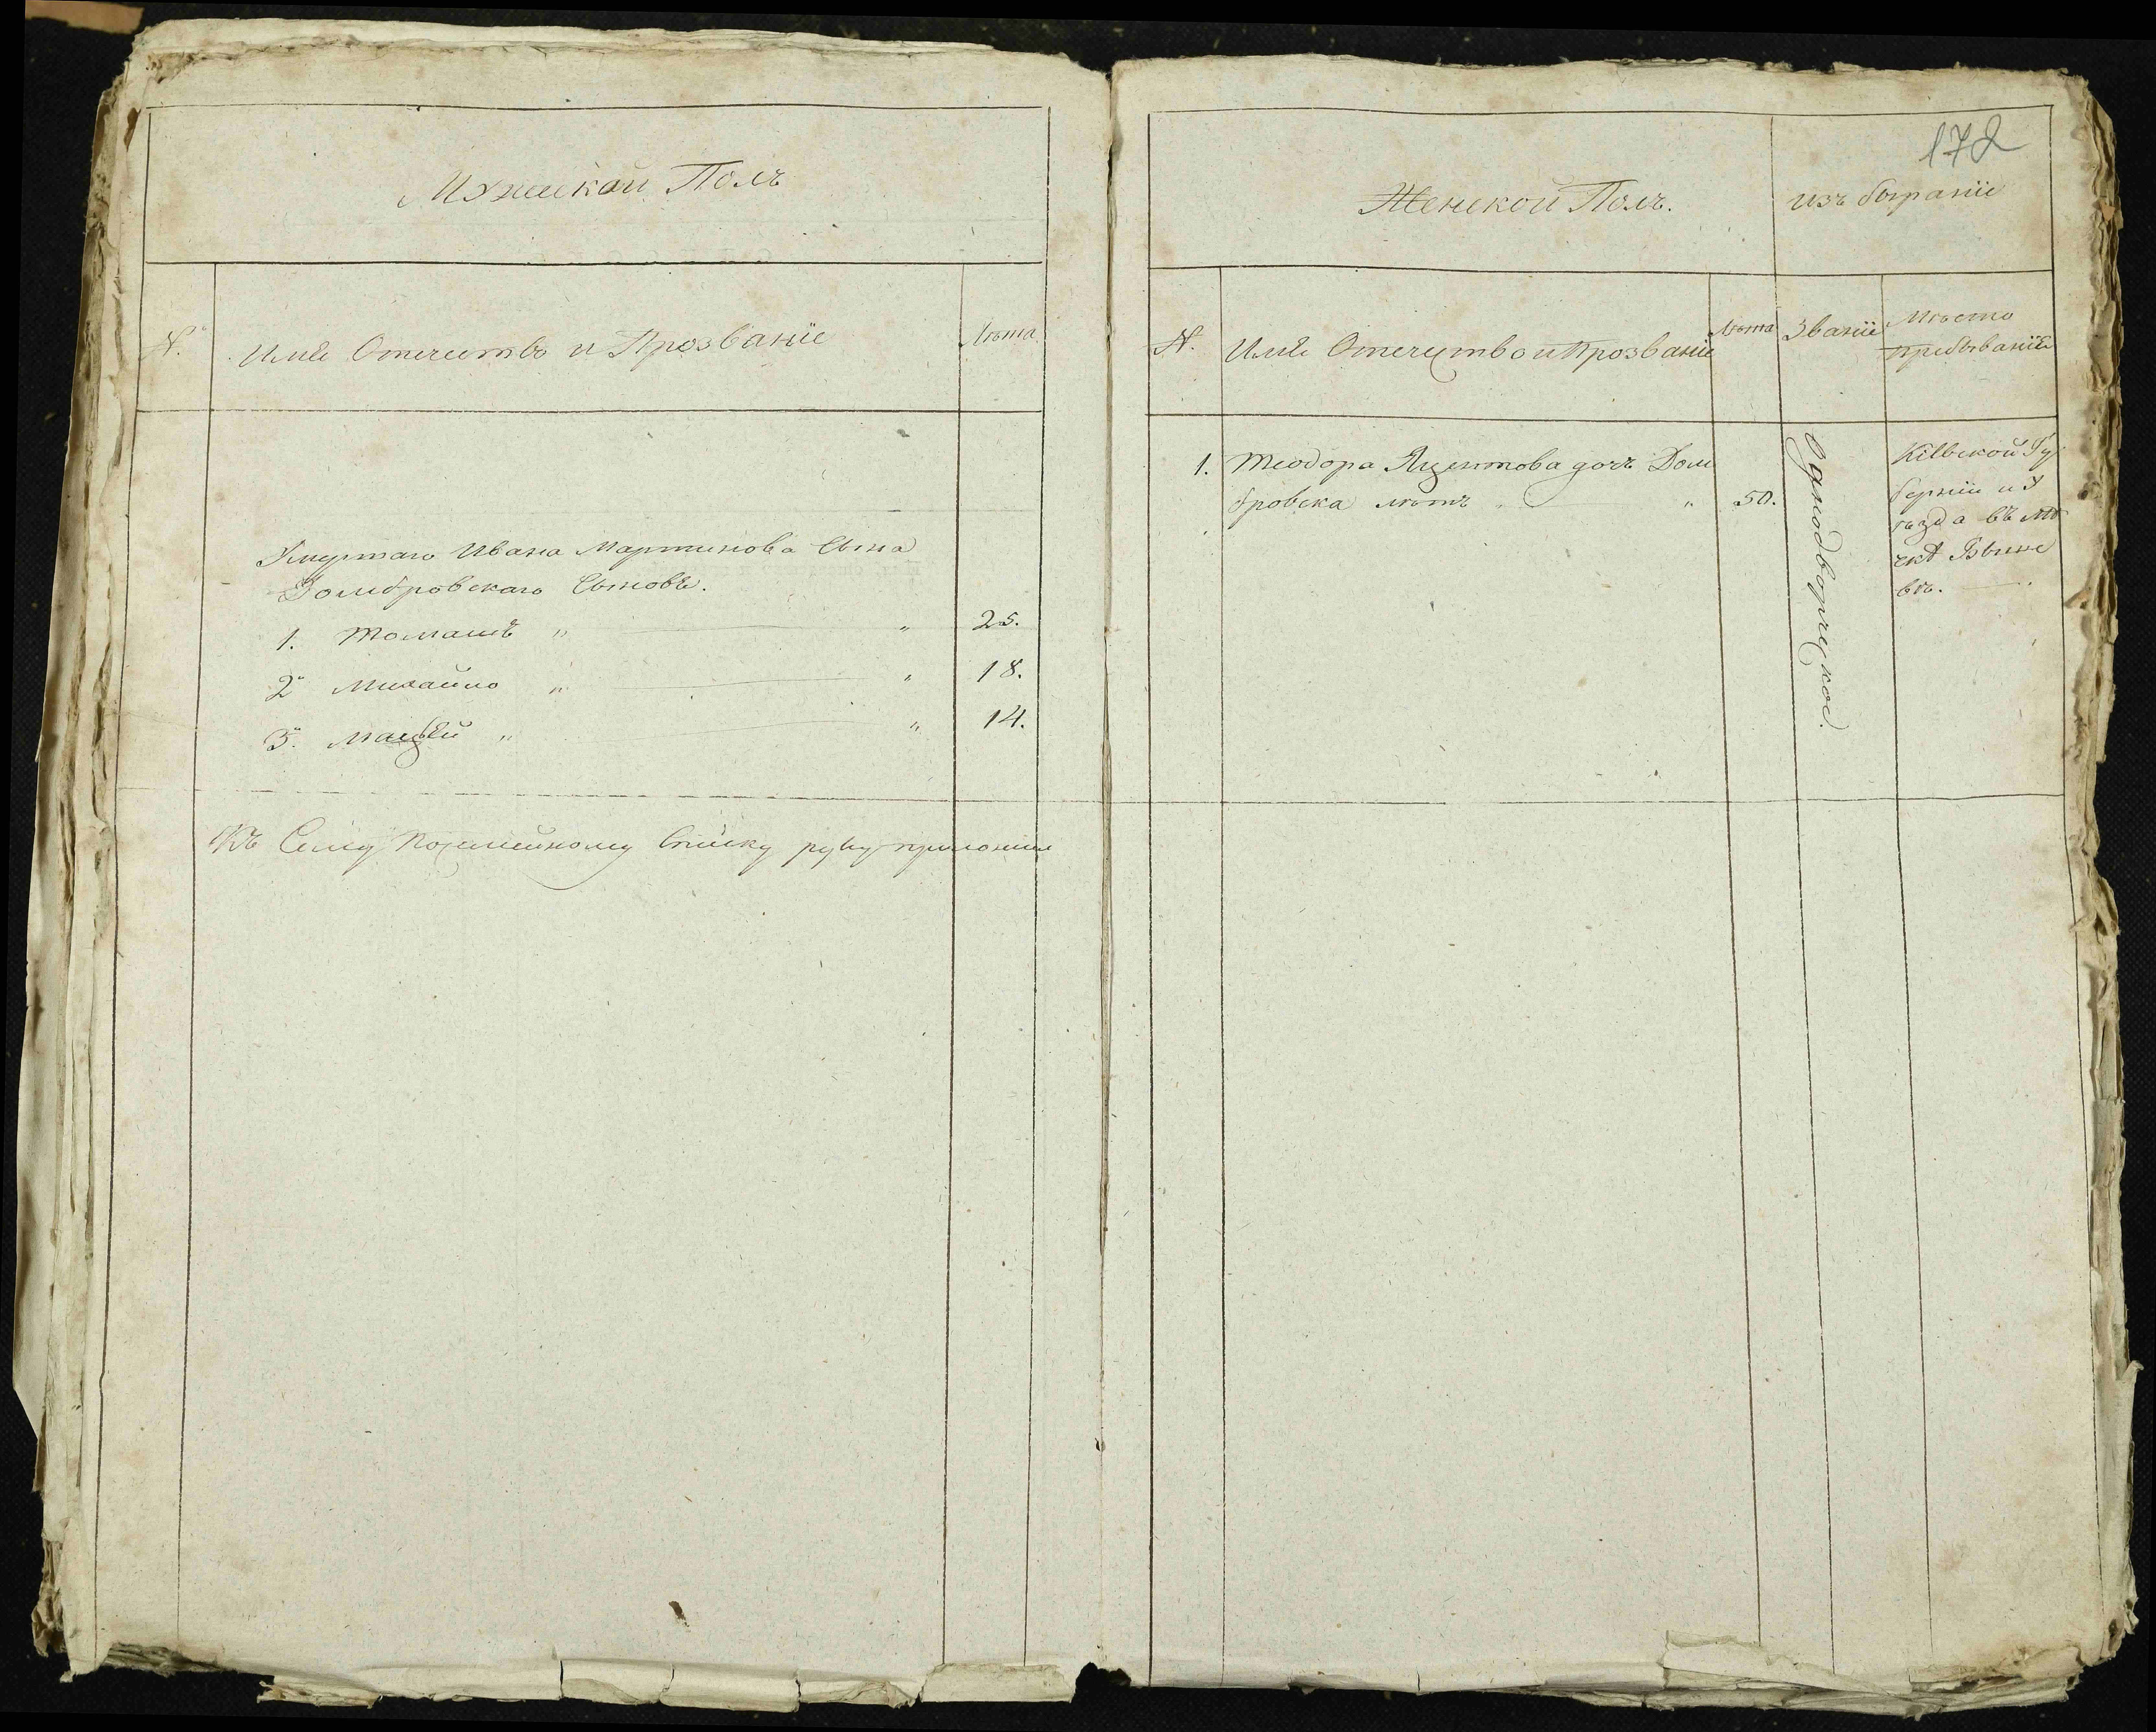 Мужскои Полъ
№.
Имѣ Отечество и Прозваніе
Лѣта
Умертаго Ивана Мартинова Сына
Домбровскаго Сыновѣ.
1. Томашъ „ „ 25.
2. Михайло „ „ 18.
3. Мацѣй „ „ 14.
Къ Сему посемейному Списку руку приложил
172
Женскои Полъ.
Избыраніе
№.
Имѣ Отечество и Прозваніе
Лѣта
Званіе
Мѣсто
Пребыванія
1. Теодора Яцентова дочь Дом
бровска лѣтъ „ „ 50.
Однодворческое.
Кіевской Гу
берніи и У
ѣзда въ мѣ
чкѣ
вѣ.